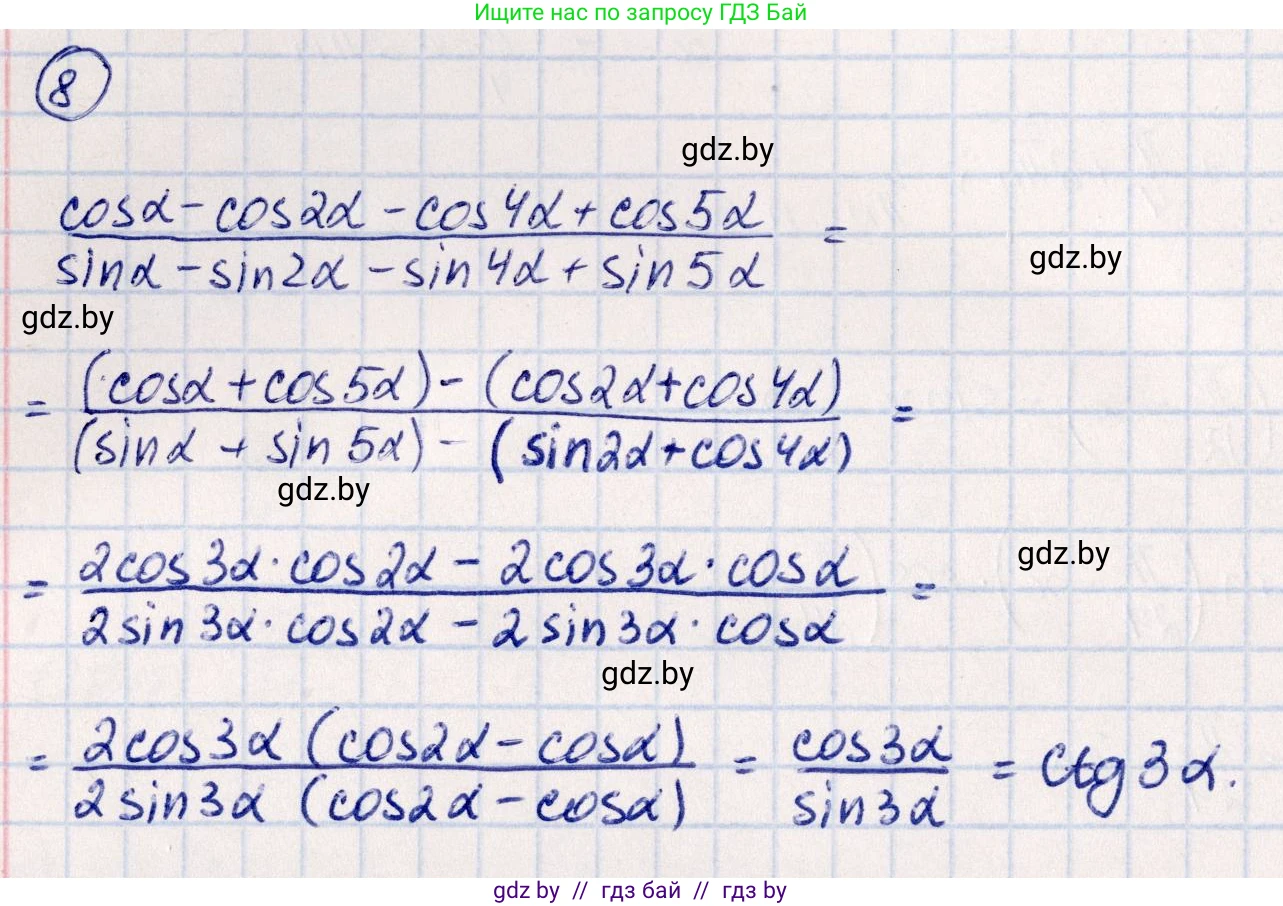 Ищите нас по запросу ГДЗ Бай
8
gdz.by
cosα - cos2α - cos4α + cos5α
sinα - sin2α - sin4α + sin5α =
gdz.by
gdz.by
= (cosα + cos5α) - (cos2α + cos4α)
(sinα + sin5α) - (sin2α + cos4α) =
gdz.by
= 2cos3α · cos2α - 2cos3α · cosα
2sin3α · cos2α - 2sin3α · cosα =
gdz.by
gdz.by
= 2cos3α (cos2α - cosα)
2sin3α (cos2α - cosα) = cos3α
sin3α = ctg3α.
gdz by // гдз бай // гдз by